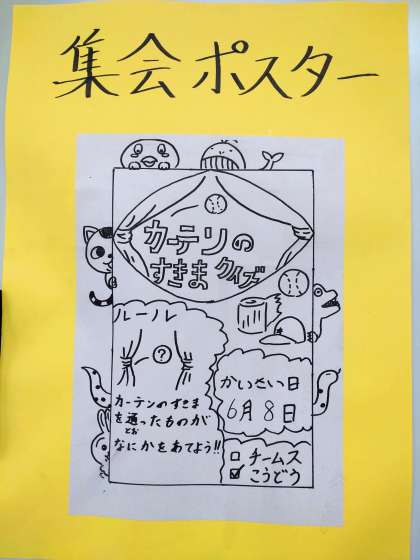 集会ポスター
カーテンの
すきまクイズ
ルール
?
カーテンのすきま
を通ったものが
とお
なにかをあてよう!!
かいさい日
6月8日
チームス
こうどう